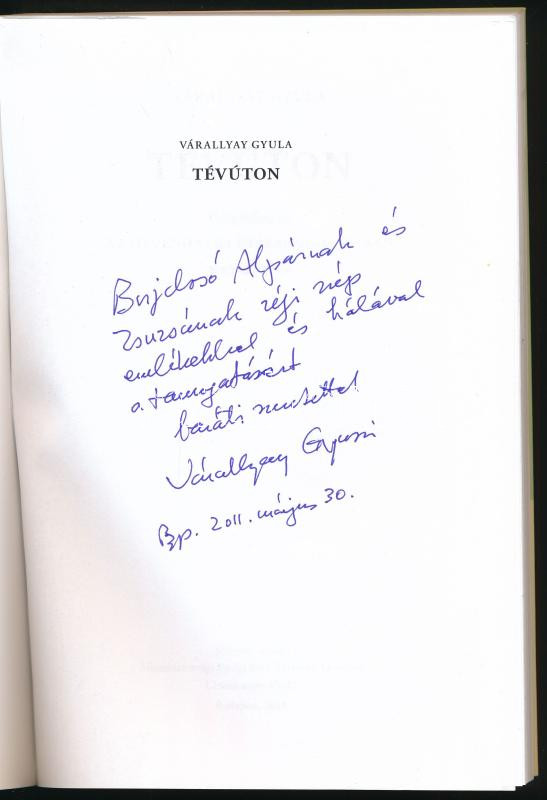 VÁRALLYAY GYULA
TÉVÚTON
Bujdosó Alpárnak és
Zsuzsának régi szép
emlékekkel és hálával
a támogatásért
baráti szeretettel
Várallyay Gyuszi
Bp. 2011. május 30.